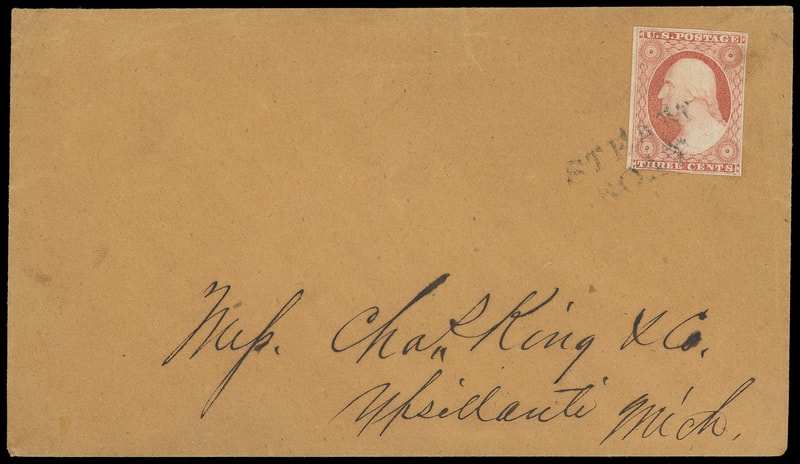 U.S. POSTAGE
THREE CENTS
Mess. Chas. King & Co.
Ypsilanti Mich.